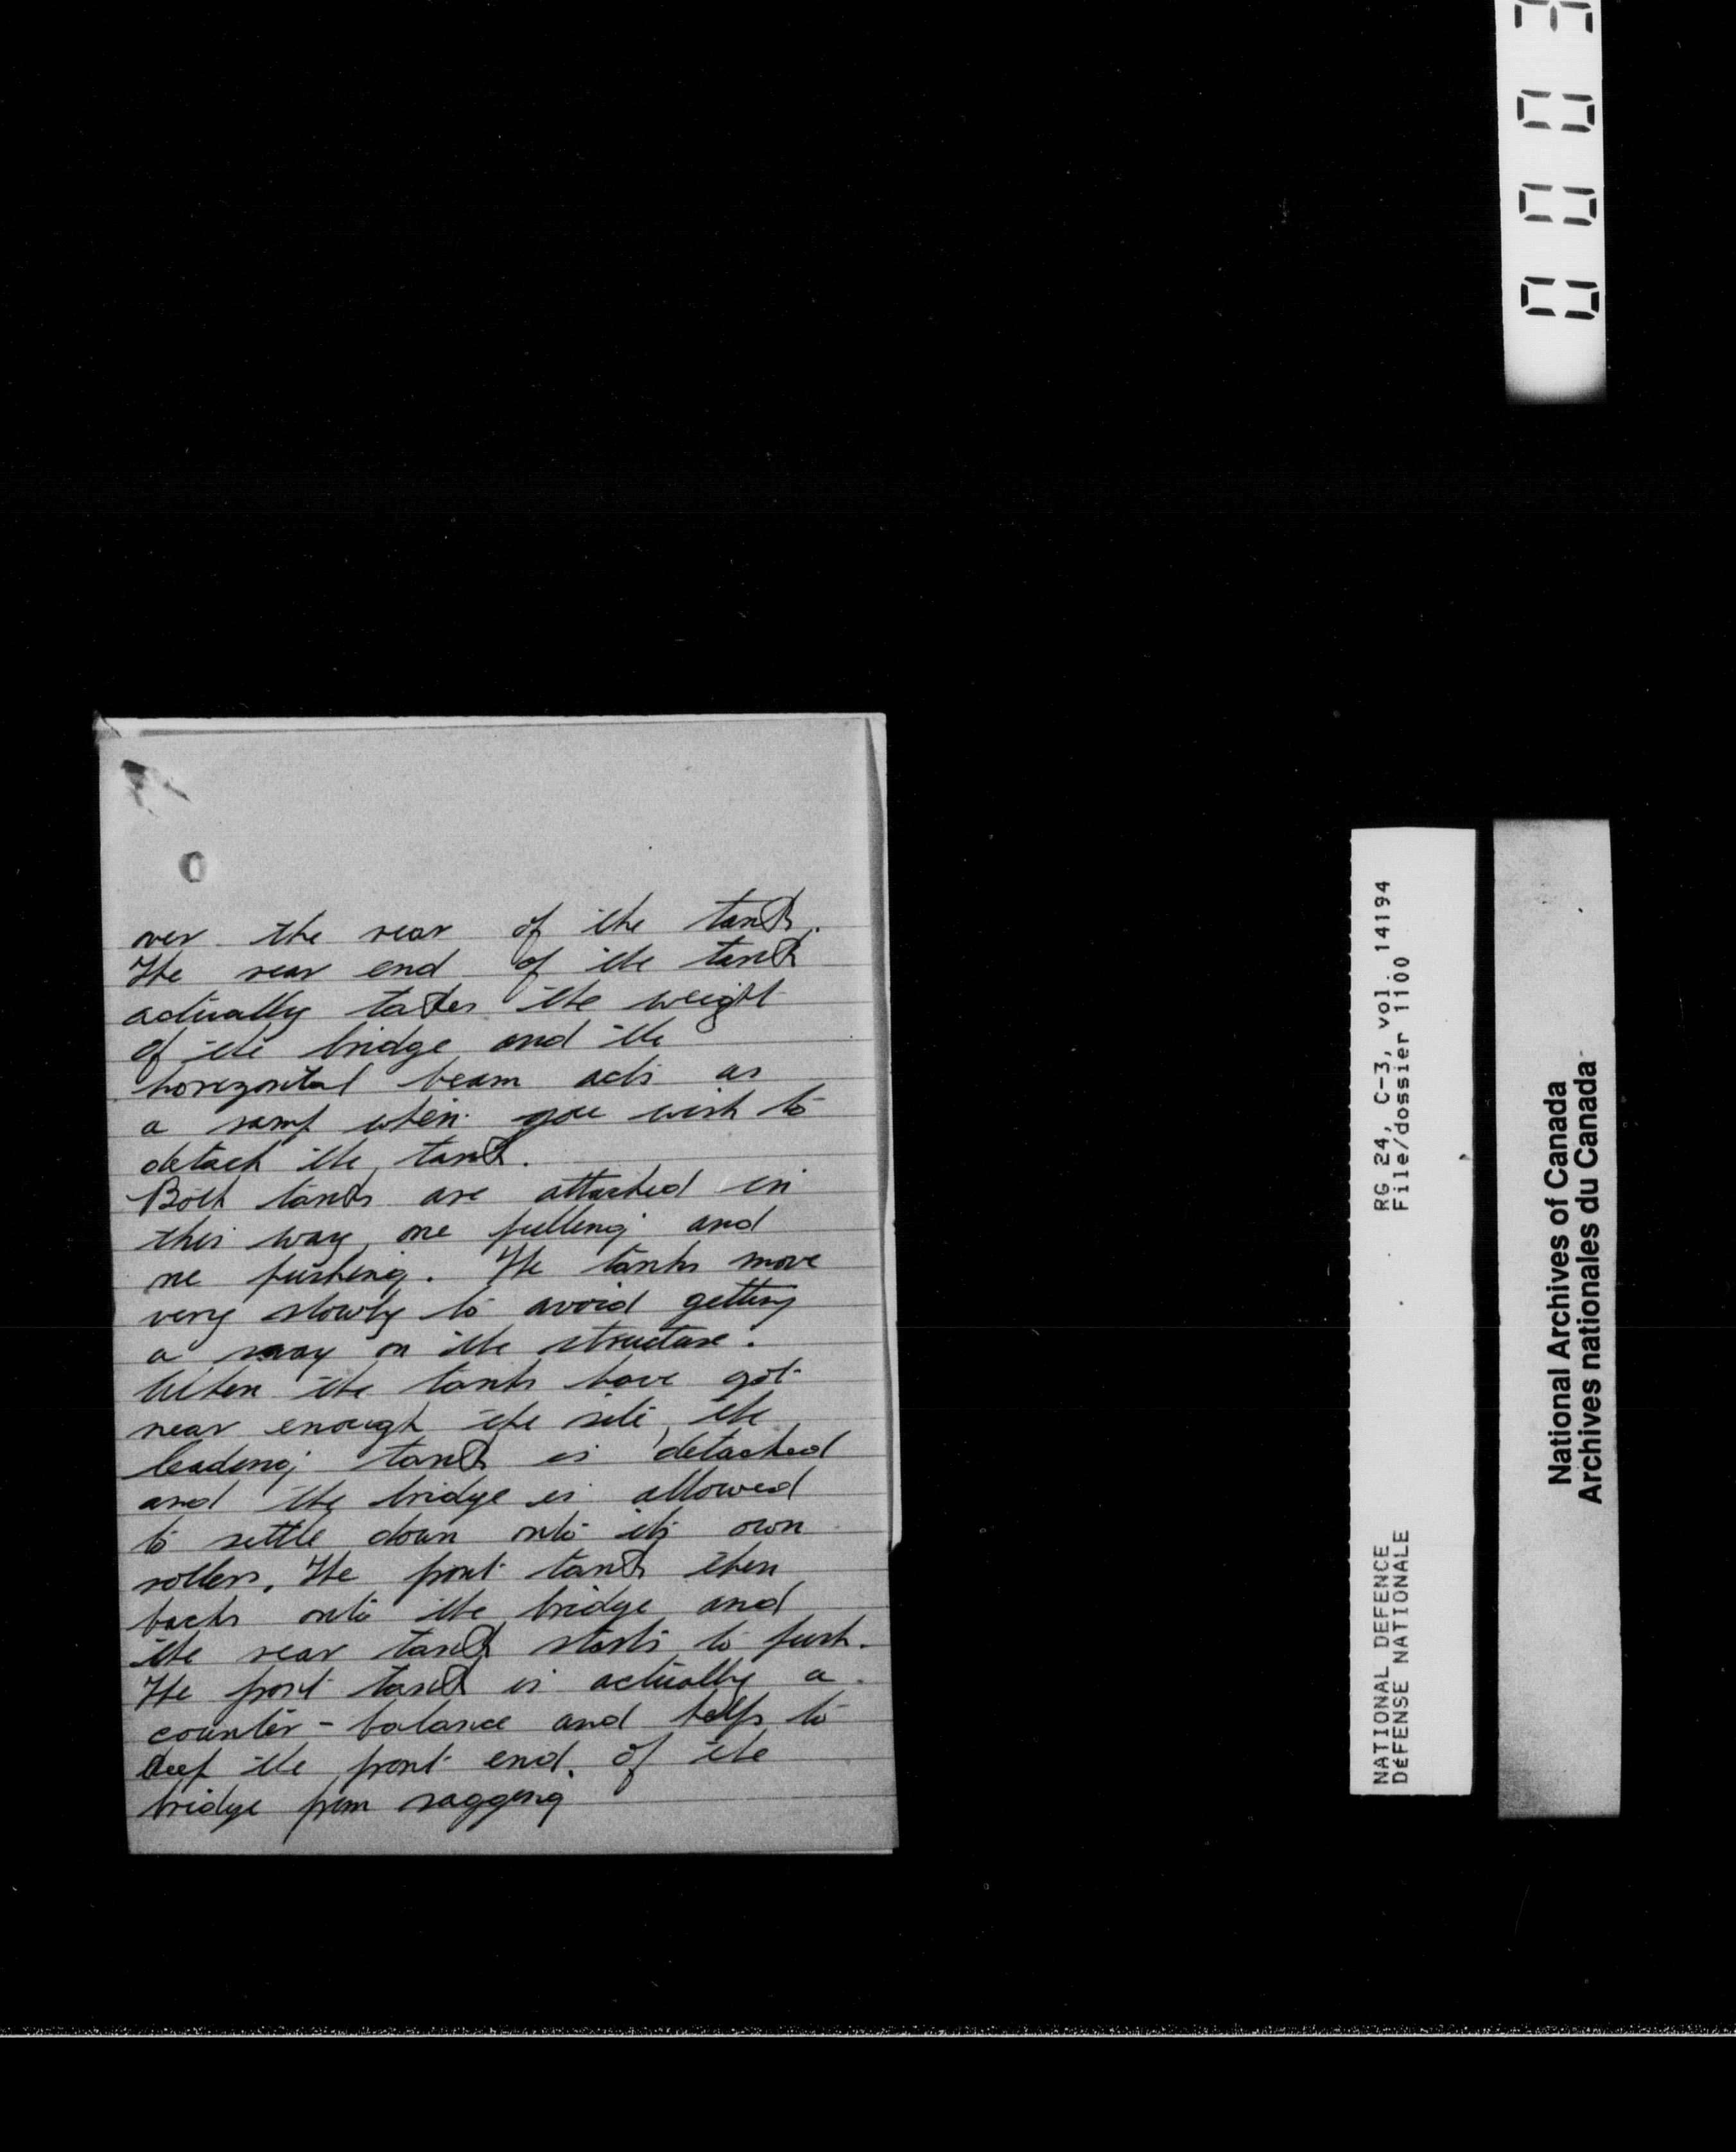 over the rear of the tank.
The rear end of the tank
actually takes the weight
of the bridge and the
horizontal beam acts as
a ramp when you wish to
detach the tank.
Both tanks are attached in
this way, one pulling and
one pushing. The tanks move
very slowly to avoid getting
a sway on the structure.
When the tanks have got
near enough the site, the
leading tank is detached
and the bridge is allowed
to settle down onto its own
rollers. The front tank then
backs onto the bridge and
the rear tank starts to push.
The front tank is actually a
counter-balance and helps to
keep the front end of the
bridge from sagging
RG 24, C-3, vol. 14194
File/dossier 1100
NATIONAL DEFENCE
DéFENSE NATIONALE
National Archives of Canada
Archives nationales du Canada
000